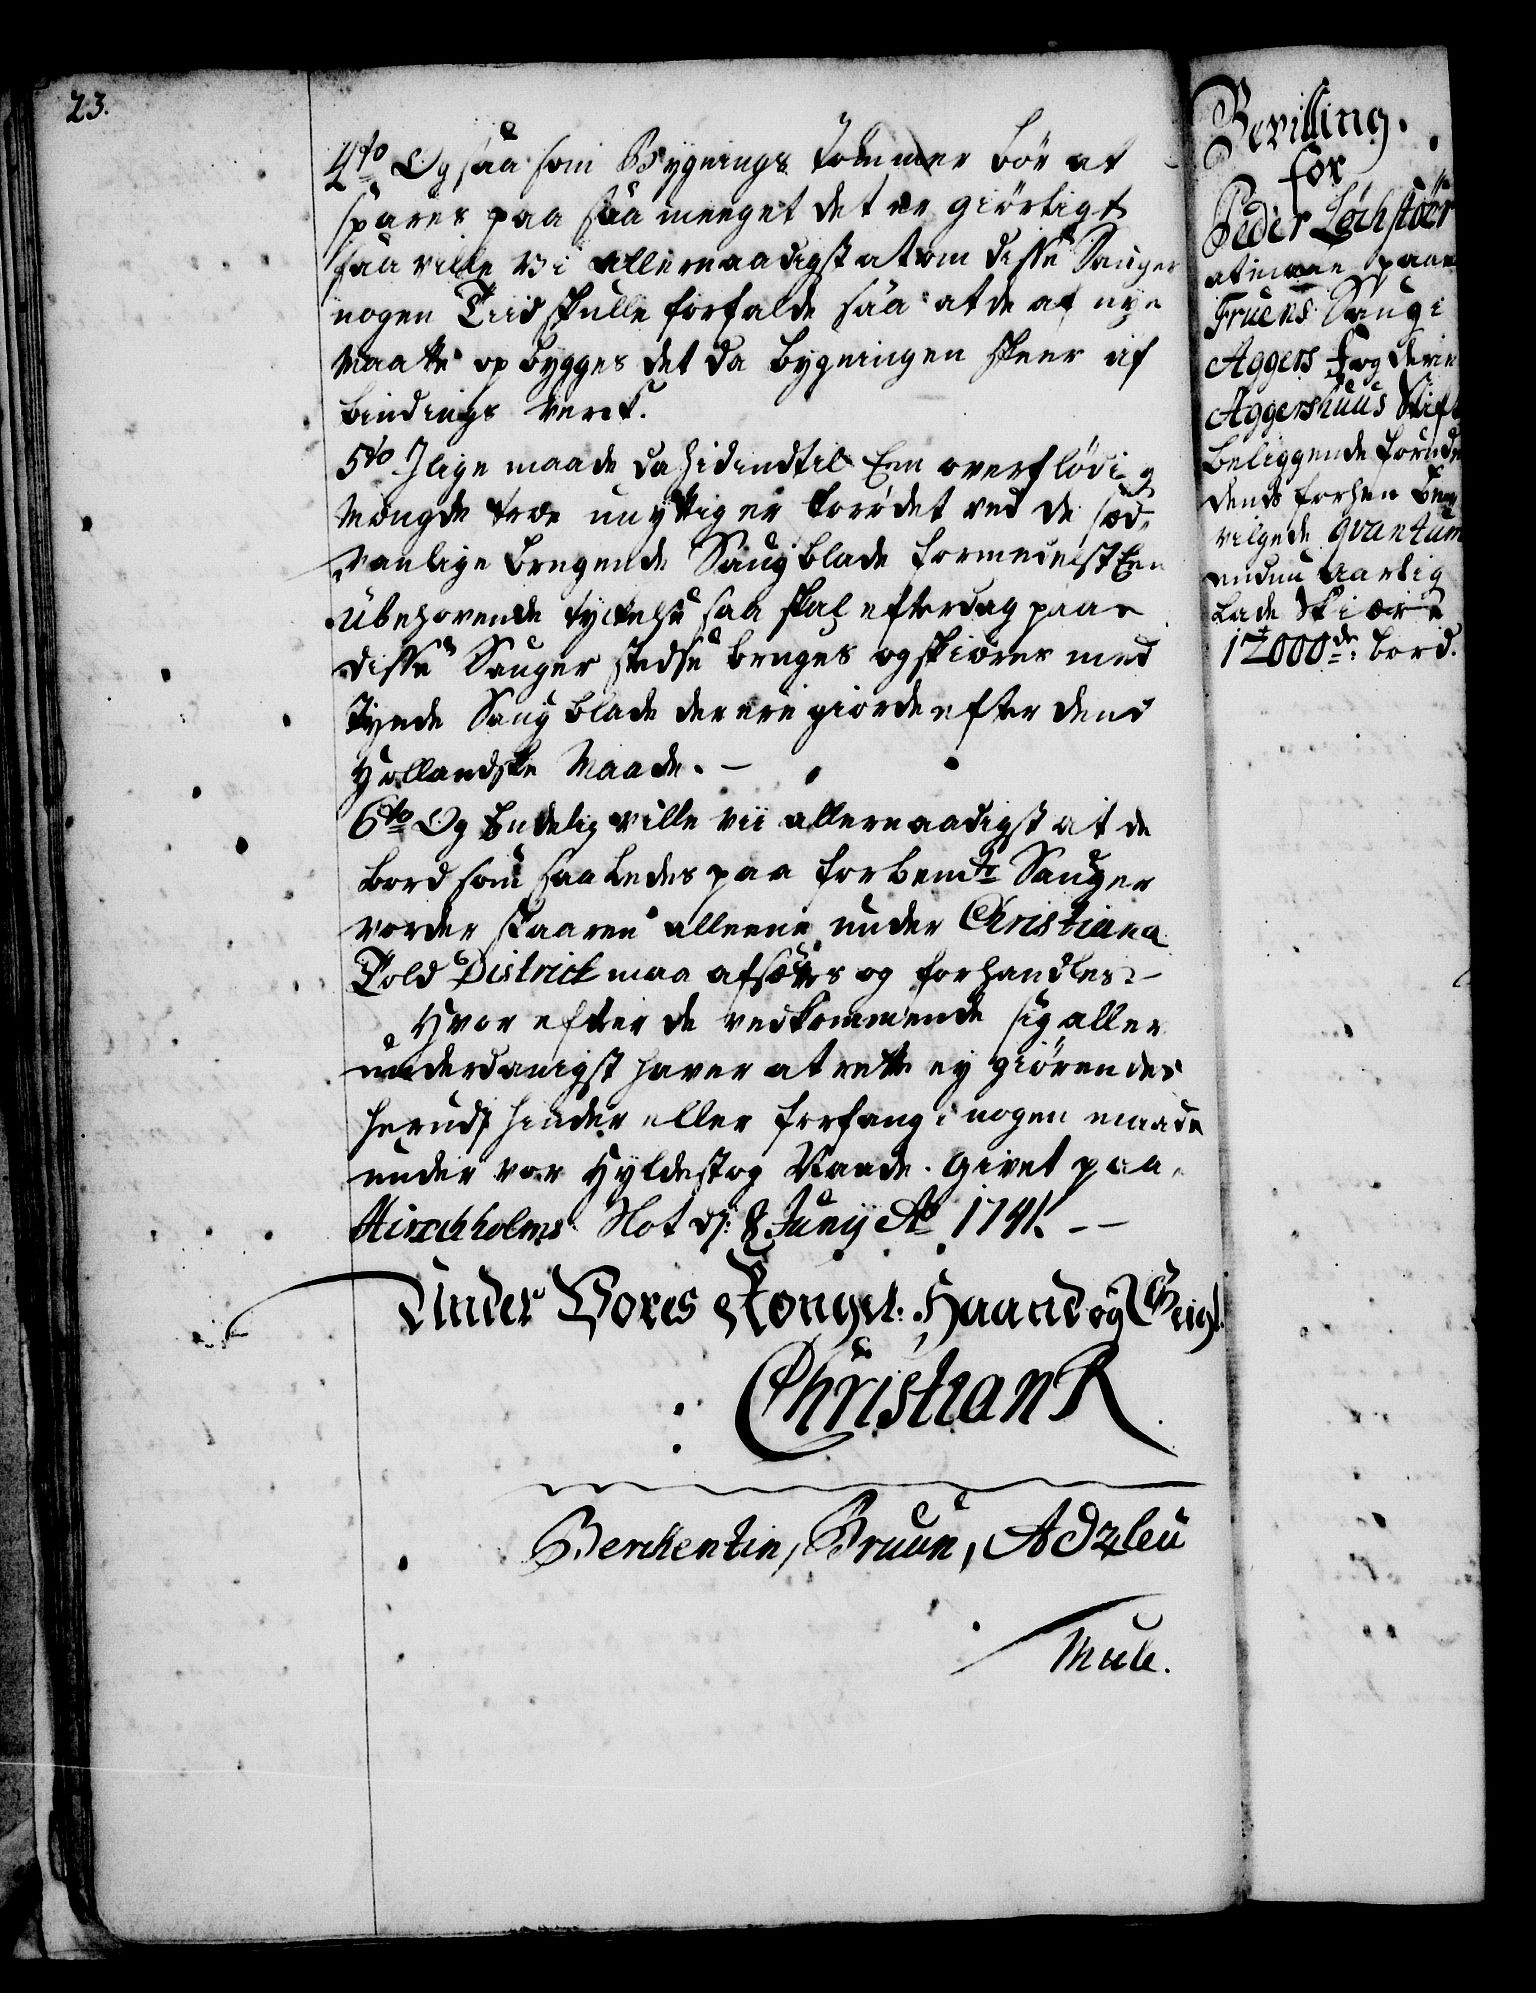 23.
4to Og saa som Bygnings Tømmer bør at
spares paa saa meeget det er giørligt
saa ville Vi allernaadigst at om disse Sauger
nogen Tiid skulle forfalde saa at de af nye
maatte opbygges det da bygningen skeer af
bindings verck.
5to Ilige maade da hidindtil Een overflødig
Mængde træe unyttig er forødet ved de sæd-
vanlige brugende Saugblade formedelst Een
ubehørende tyckelse saa skal efterdag paa
disse Sauger stedse bruges og skiæres med
tynde Saugblade der ere giorde efter dend
Hollandske Maade. -
6to Og Endelig ville vii allernaadigst at de
bord som saaledes paa forbemte Sauger
vorder skaaren alleene under Christiana
Told District maa afsættes og forhandles. -
Hvor efter de vedkommende sig aller
underdanigst haver at rette ey giørendes
herudj hinder eller forfang i nogen maade
under vor Hyldest og Naade. Givet paa
Hirschholms Slot dj: 8 Junij Ao 1741. - -
Under Vores Kongel: Haand og Seigl.
Christian R
Berckentin, Bruun, Adzleu
Mule.
Bevilling.
for
Peder Leth støer
at maae paa
Fruens Saug i
Aggers Fogderie
Aggershuus Stift
beliggende foruden
dends forhen be-
vilgede qvantum
endnu aarlig
lade skiære
12000de bord.